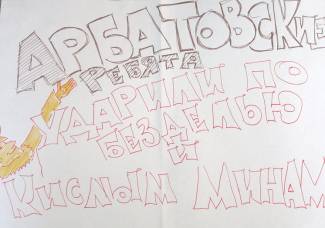 АРБАТОВСКИЕ
РЕБЯТА
УДАРИЛИ ПО
БЕЗДЕЛЬЮ
И
КИСЛЫМ МИНАМ